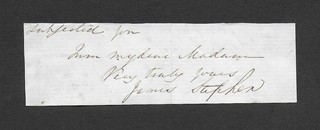 subjected you
I am my dear Madam
Very truly yours
James Stephen